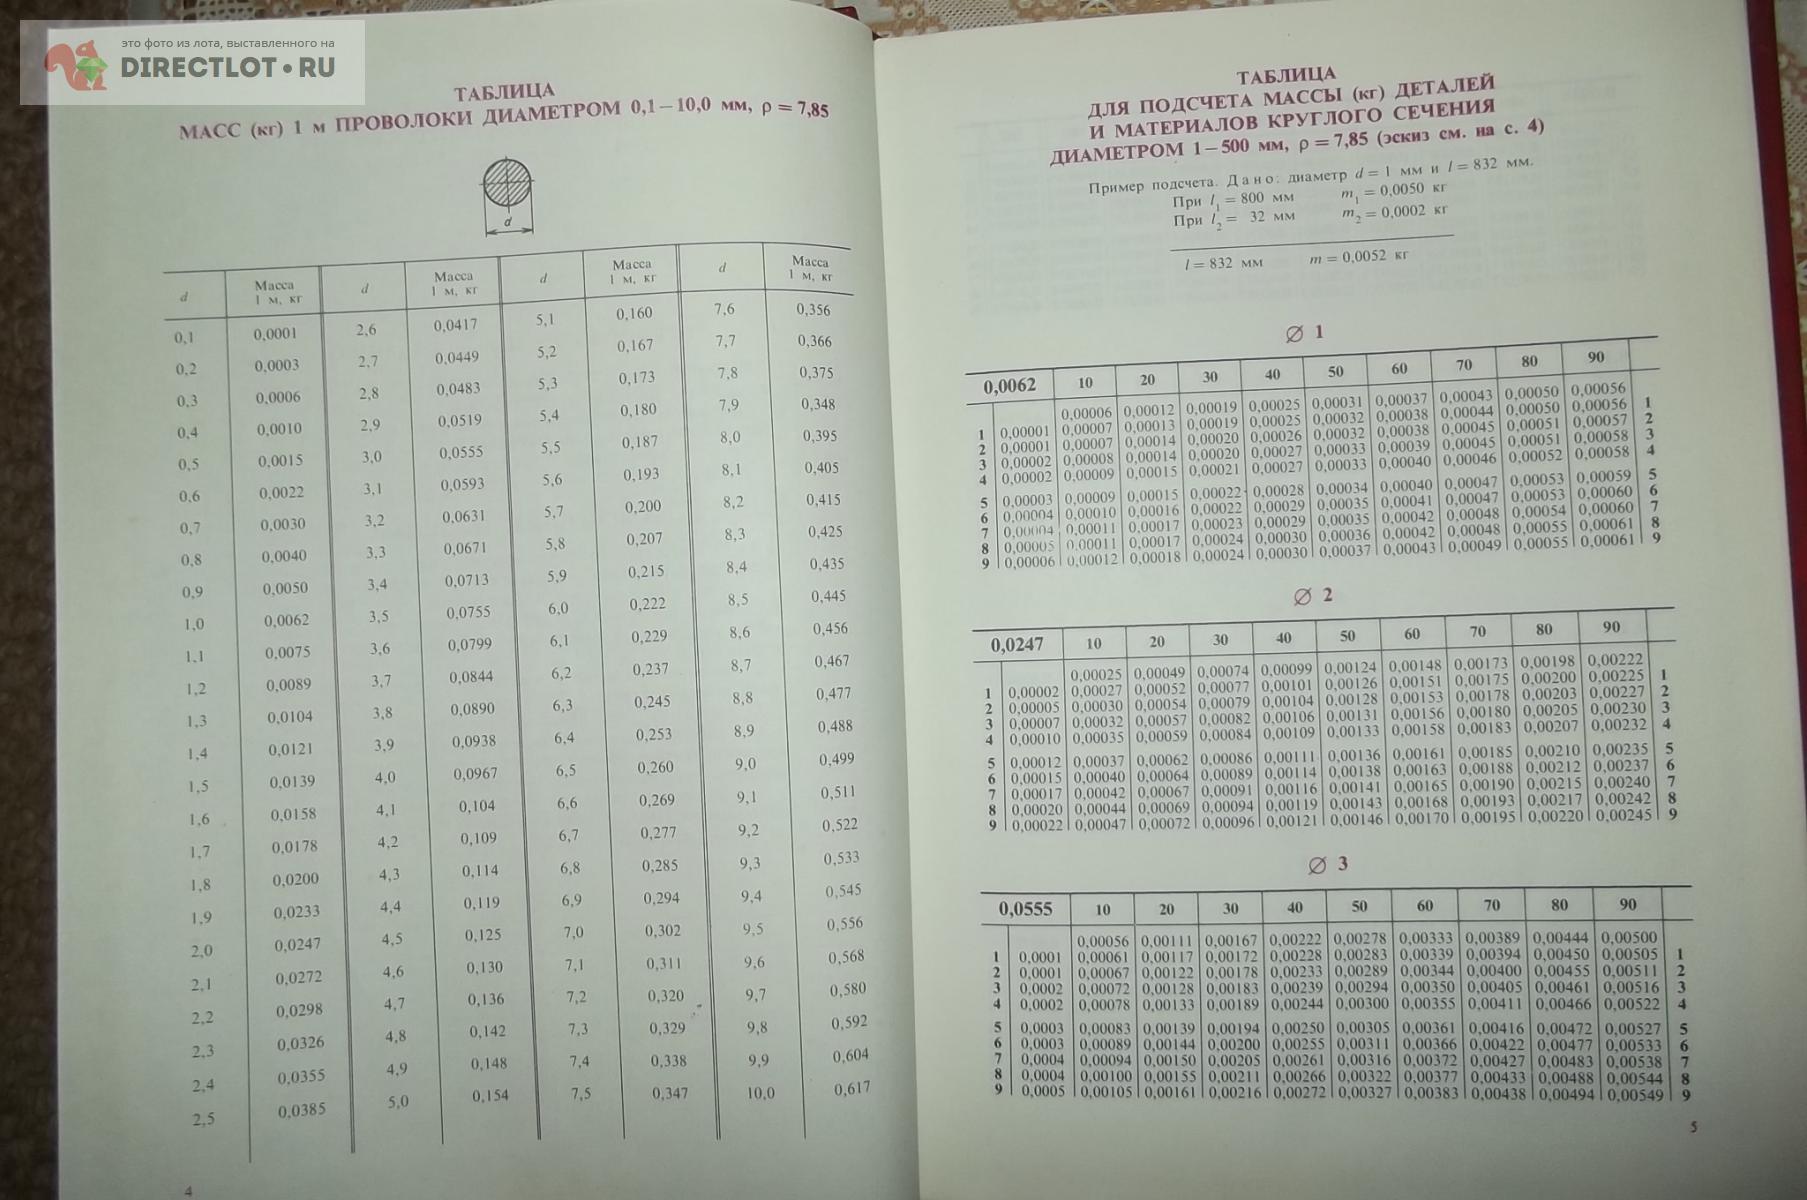 это фото из лота, выставленного на
DIRECTLOT•RU
ТАБЛИЦА
МАСС (кг) 1 м ПРОВОЛОКИ ДИАМЕТРОМ 0,1—10,0 мм, ρ = 7,85
d
d Масса 1 м, кг d Масса 1 м, кг d Масса 1 м, кг d Масса 1 м, кг
0,1 0,0001 2,6 0,0417 5,1 0,160 7,6 0,356
0,2 0,0003 2,7 0,0449 5,2 0,167 7,7 0,366
0,3 0,0006 2,8 0,0483 5,3 0,173 7,8 0,375
0,4 0,0010 2,9 0,0519 5,4 0,180 7,9 0,348
0,5 0,0015 3,0 0,0555 5,5 0,187 8,0 0,395
0,6 0,0022 3,1 0,0593 5,6 0,193 8,1 0,405
0,7 0,0030 3,2 0,0631 5,7 0,200 8,2 0,415
0,8 0,0040 3,3 0,0671 5,8 0,207 8,3 0,425
0,9 0,0050 3,4 0,0713 5,9 0,215 8,4 0,435
1,0 0,0062 3,5 0,0755 6,0 0,222 8,5 0,445
1,1 0,0075 3,6 0,0799 6,1 0,229 8,6 0,456
1,2 0,0089 3,7 0,0844 6,2 0,237 8,7 0,467
1,3 0,0104 3,8 0,0890 6,3 0,245 8,8 0,477
1,4 0,0121 3,9 0,0938 6,4 0,253 8,9 0,488
1,5 0,0139 4,0 0,0967 6,5 0,260 9,0 0,499
1,6 0,0158 4,1 0,104 6,6 0,269 9,1 0,511
1,7 0,0178 4,2 0,109 6,7 0,277 9,2 0,522
1,8 0,0200 4,3 0,114 6,8 0,285 9,3 0,533
1,9 0,0233 4,4 0,119 6,9 0,294 9,4 0,545
2,0 0,0247 4,5 0,125 7,0 0,302 9,5 0,556
2,1 0,0272 4,6 0,130 7,1 0,311 9,6 0,568
2,2 0,0298 4,7 0,136 7,2 0,320 9,7 0,580
2,3 0,0326 4,8 0,142 7,3 0,329 9,8 0,592
2,4 0,0355 4,9 0,148 7,4 0,338 9,9 0,604
2,5 0,0385 5,0 0,154 7,5 0,347 10,0 0,617
4
ТАБЛИЦА
ДЛЯ ПОДСЧЕТА МАССЫ (кг) ДЕТАЛЕЙ
И МАТЕРИАЛОВ КРУГЛОГО СЕЧЕНИЯ
ДИАМЕТРОМ 1—500 мм, ρ = 7,85 (эскиз см. на с. 4)
Пример подсчета. Дано: диаметр d = 1 мм и l = 832 мм.
При l1 = 800 мм m1 = 0,0050 кг
При l2 = 32 мм m2 = 0,0002 кг
l = 832 мм m = 0,0052 кг
∅ 1
0,0062 10 20 30 40 50 60 70 80 90
0,00006 0,00012 0,00019 0,00025 0,00031 0,00037 0,00043 0,00050 0,00056
1 0,00001 0,00007 0,00013 0,00019 0,00025 0,00032 0,00038 0,00044 0,00050 0,00056 1
2 0,00001 0,00007 0,00014 0,00020 0,00026 0,00032 0,00038 0,00045 0,00051 0,00057 2
3 0,00002 0,00008 0,00014 0,00020 0,00027 0,00033 0,00039 0,00045 0,00051 0,00058 3
4 0,00002 0,00009 0,00015 0,00021 0,00027 0,00033 0,00040 0,00046 0,00052 0,00058 4
5 0,00003 0,00009 0,00015 0,00022 0,00028 0,00034 0,00040 0,00047 0,00053 0,00059 5
6 0,00004 0,00010 0,00016 0,00022 0,00029 0,00035 0,00041 0,00047 0,00053 0,00060 6
7 0,00004 0,00011 0,00017 0,00023 0,00029 0,00035 0,00042 0,00048 0,00054 0,00060 7
8 0,00005 0,00011 0,00017 0,00024 0,00030 0,00036 0,00042 0,00048 0,00055 0,00061 8
9 0,00006 0,00012 0,00018 0,00024 0,00030 0,00037 0,00043 0,00049 0,00055 0,00061 9
∅ 2
0,0247 10 20 30 40 50 60 70 80 90
0,00025 0,00049 0,00074 0,00099 0,00124 0,00148 0,00173 0,00198 0,00222
1 0,00002 0,00027 0,00052 0,00077 0,00101 0,00126 0,00151 0,00175 0,00200 0,00225 1
2 0,00005 0,00030 0,00054 0,00079 0,00104 0,00128 0,00153 0,00178 0,00203 0,00227 2
3 0,00007 0,00032 0,00057 0,00082 0,00106 0,00131 0,00156 0,00180 0,00205 0,00230 3
4 0,00010 0,00035 0,00059 0,00084 0,00109 0,00133 0,00158 0,00183 0,00207 0,00232 4
5 0,00012 0,00037 0,00062 0,00086 0,00111 0,00136 0,00161 0,00185 0,00210 0,00235 5
6 0,00015 0,00040 0,00064 0,00089 0,00114 0,00138 0,00163 0,00188 0,00212 0,00237 6
7 0,00017 0,00042 0,00067 0,00091 0,00116 0,00141 0,00165 0,00190 0,00215 0,00240 7
8 0,00020 0,00044 0,00069 0,00094 0,00119 0,00143 0,00168 0,00193 0,00217 0,00242 8
9 0,00022 0,00047 0,00072 0,00096 0,00121 0,00146 0,00170 0,00195 0,00220 0,00245 9
∅ 3
0,0555 10 20 30 40 50 60 70 80 90
0,00056 0,00111 0,00167 0,00222 0,00278 0,00333 0,00389 0,00444 0,00500
1 0,0001 0,00061 0,00117 0,00172 0,00228 0,00283 0,00339 0,00394 0,00450 0,00505 1
2 0,0001 0,00067 0,00122 0,00178 0,00233 0,00289 0,00344 0,00400 0,00455 0,00511 2
3 0,0002 0,00072 0,00128 0,00183 0,00239 0,00294 0,00350 0,00405 0,00461 0,00516 3
4 0,0002 0,00078 0,00133 0,00189 0,00244 0,00300 0,00355 0,00411 0,00466 0,00522 4
5 0,0003 0,00083 0,00139 0,00194 0,00250 0,00305 0,00361 0,00416 0,00472 0,00527 5
6 0,0003 0,00089 0,00144 0,00200 0,00255 0,00311 0,00366 0,00422 0,00477 0,00533 6
7 0,0004 0,00094 0,00150 0,00205 0,00261 0,00316 0,00372 0,00427 0,00483 0,00538 7
8 0,0004 0,00100 0,00155 0,00211 0,00266 0,00322 0,00377 0,00433 0,00488 0,00544 8
9 0,0005 0,00105 0,00161 0,00216 0,00272 0,00327 0,00383 0,00438 0,00494 0,00549 9
5